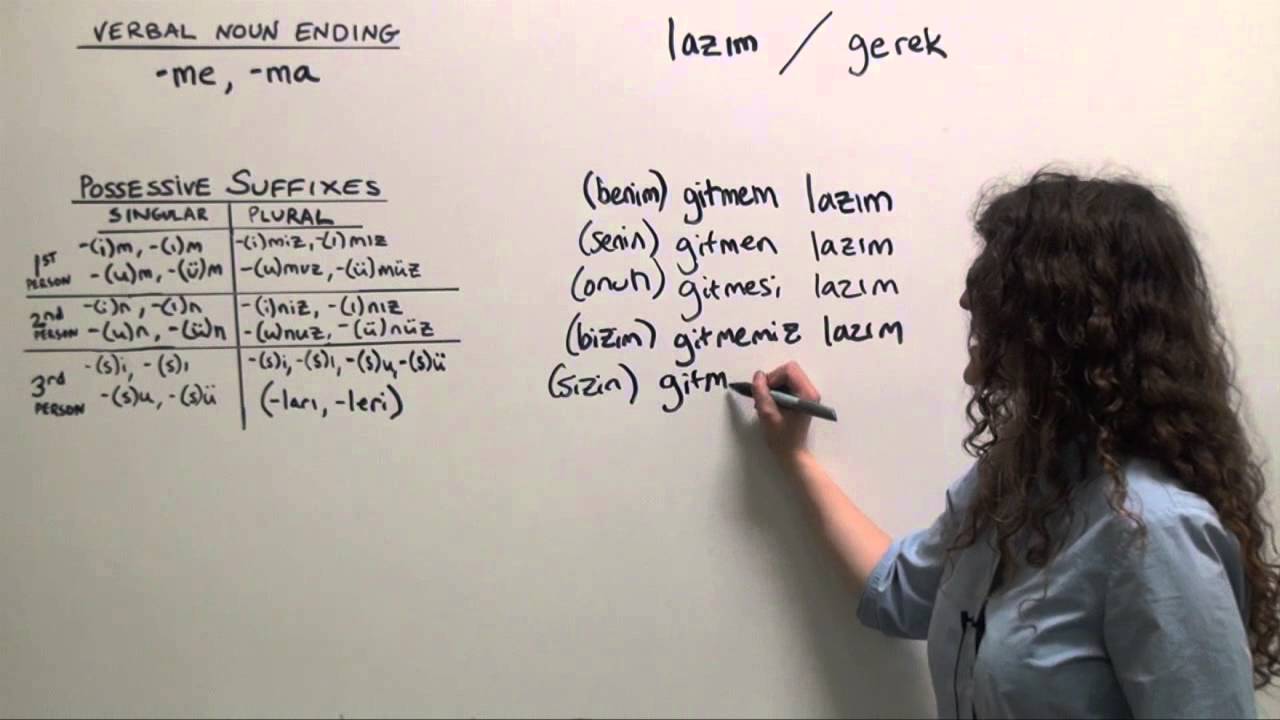 VERBAL NOUN ENDING
-me, -ma
lazım / gerek
POSSESSIVE SUFFIXES
SINGULAR PLURAL
1ST PERSON -(i)m, -(ı)m -(i)miz, -(ı)mız
-(u)m, -(ü)m -(u)muz, -(ü)müz
2nd PERSON -(i)n, -(ı)n -(i)niz, -(ı)nız
-(u)n, -(ü)n -(u)nuz, -(ü)nüz
3rd PERSON -(s)i, -(s)ı -(s)i, -(s)ı, -(s)u, -(s)ü
-(s)u, -(s)ü (-ları, -leri)
(benim) gitmem lazım
(senin) gitmen lazım
(onun) gitmesi lazım
(bizim) gitmemiz lazım
(sizin) gitm